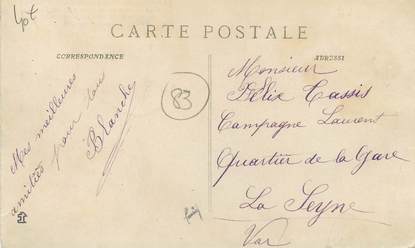 CARTE POSTALE
CORRESPONDANCE
ADRESSE
Mes meilleures
amitiés pour tou
Blanche
83
Monsieur
Félix Tassis
Campagne Laurent
Quartier de la Gare
La Seyne
Var